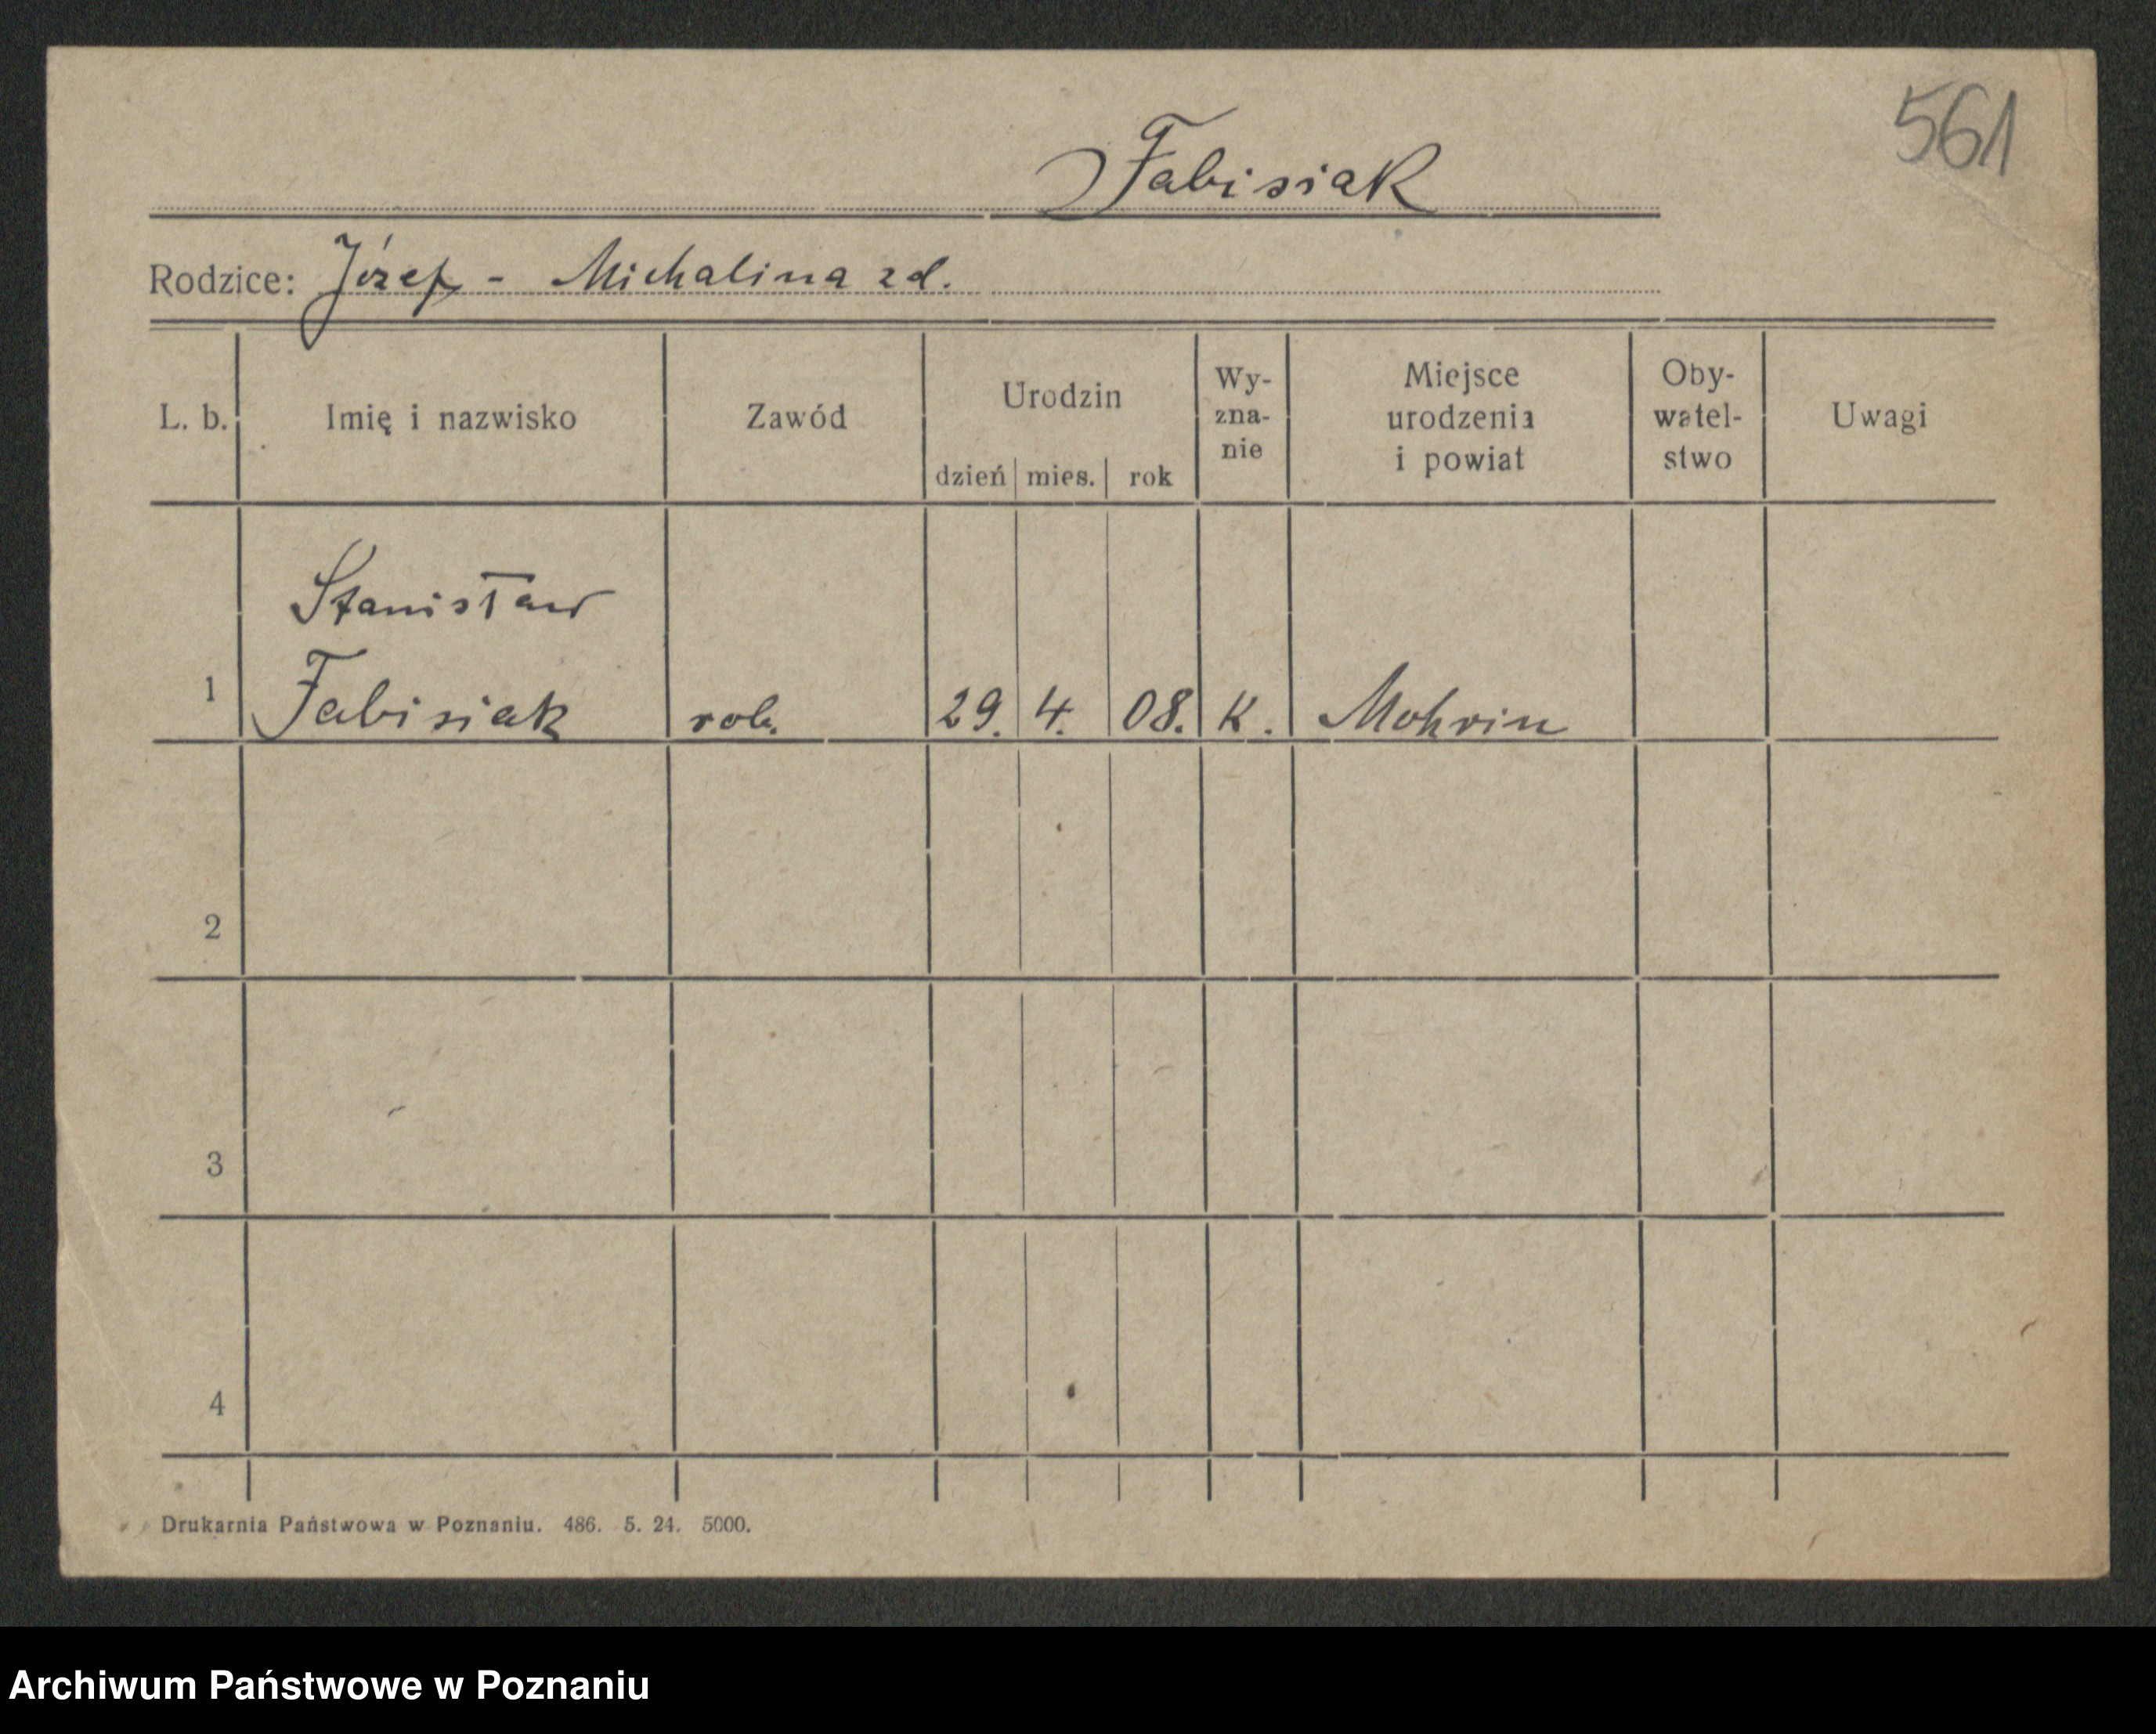 561
Fabisiak
Rodzice: Józef - Michalina zd.
L. b. Imię i nazwisko Zawód Urodzin dzień mies. rok Wy-zna-nie Miejsce urodzenia i powiat Oby-watel-stwo Uwagi
Stanisław
1 Fabisiak rob. 29. 4. 08. K. Mohrin
2
3
4
Drukarnia Państwowa w Poznaniu. 486. 5. 24. 5000.
Archiwum Państwowe w Poznaniu